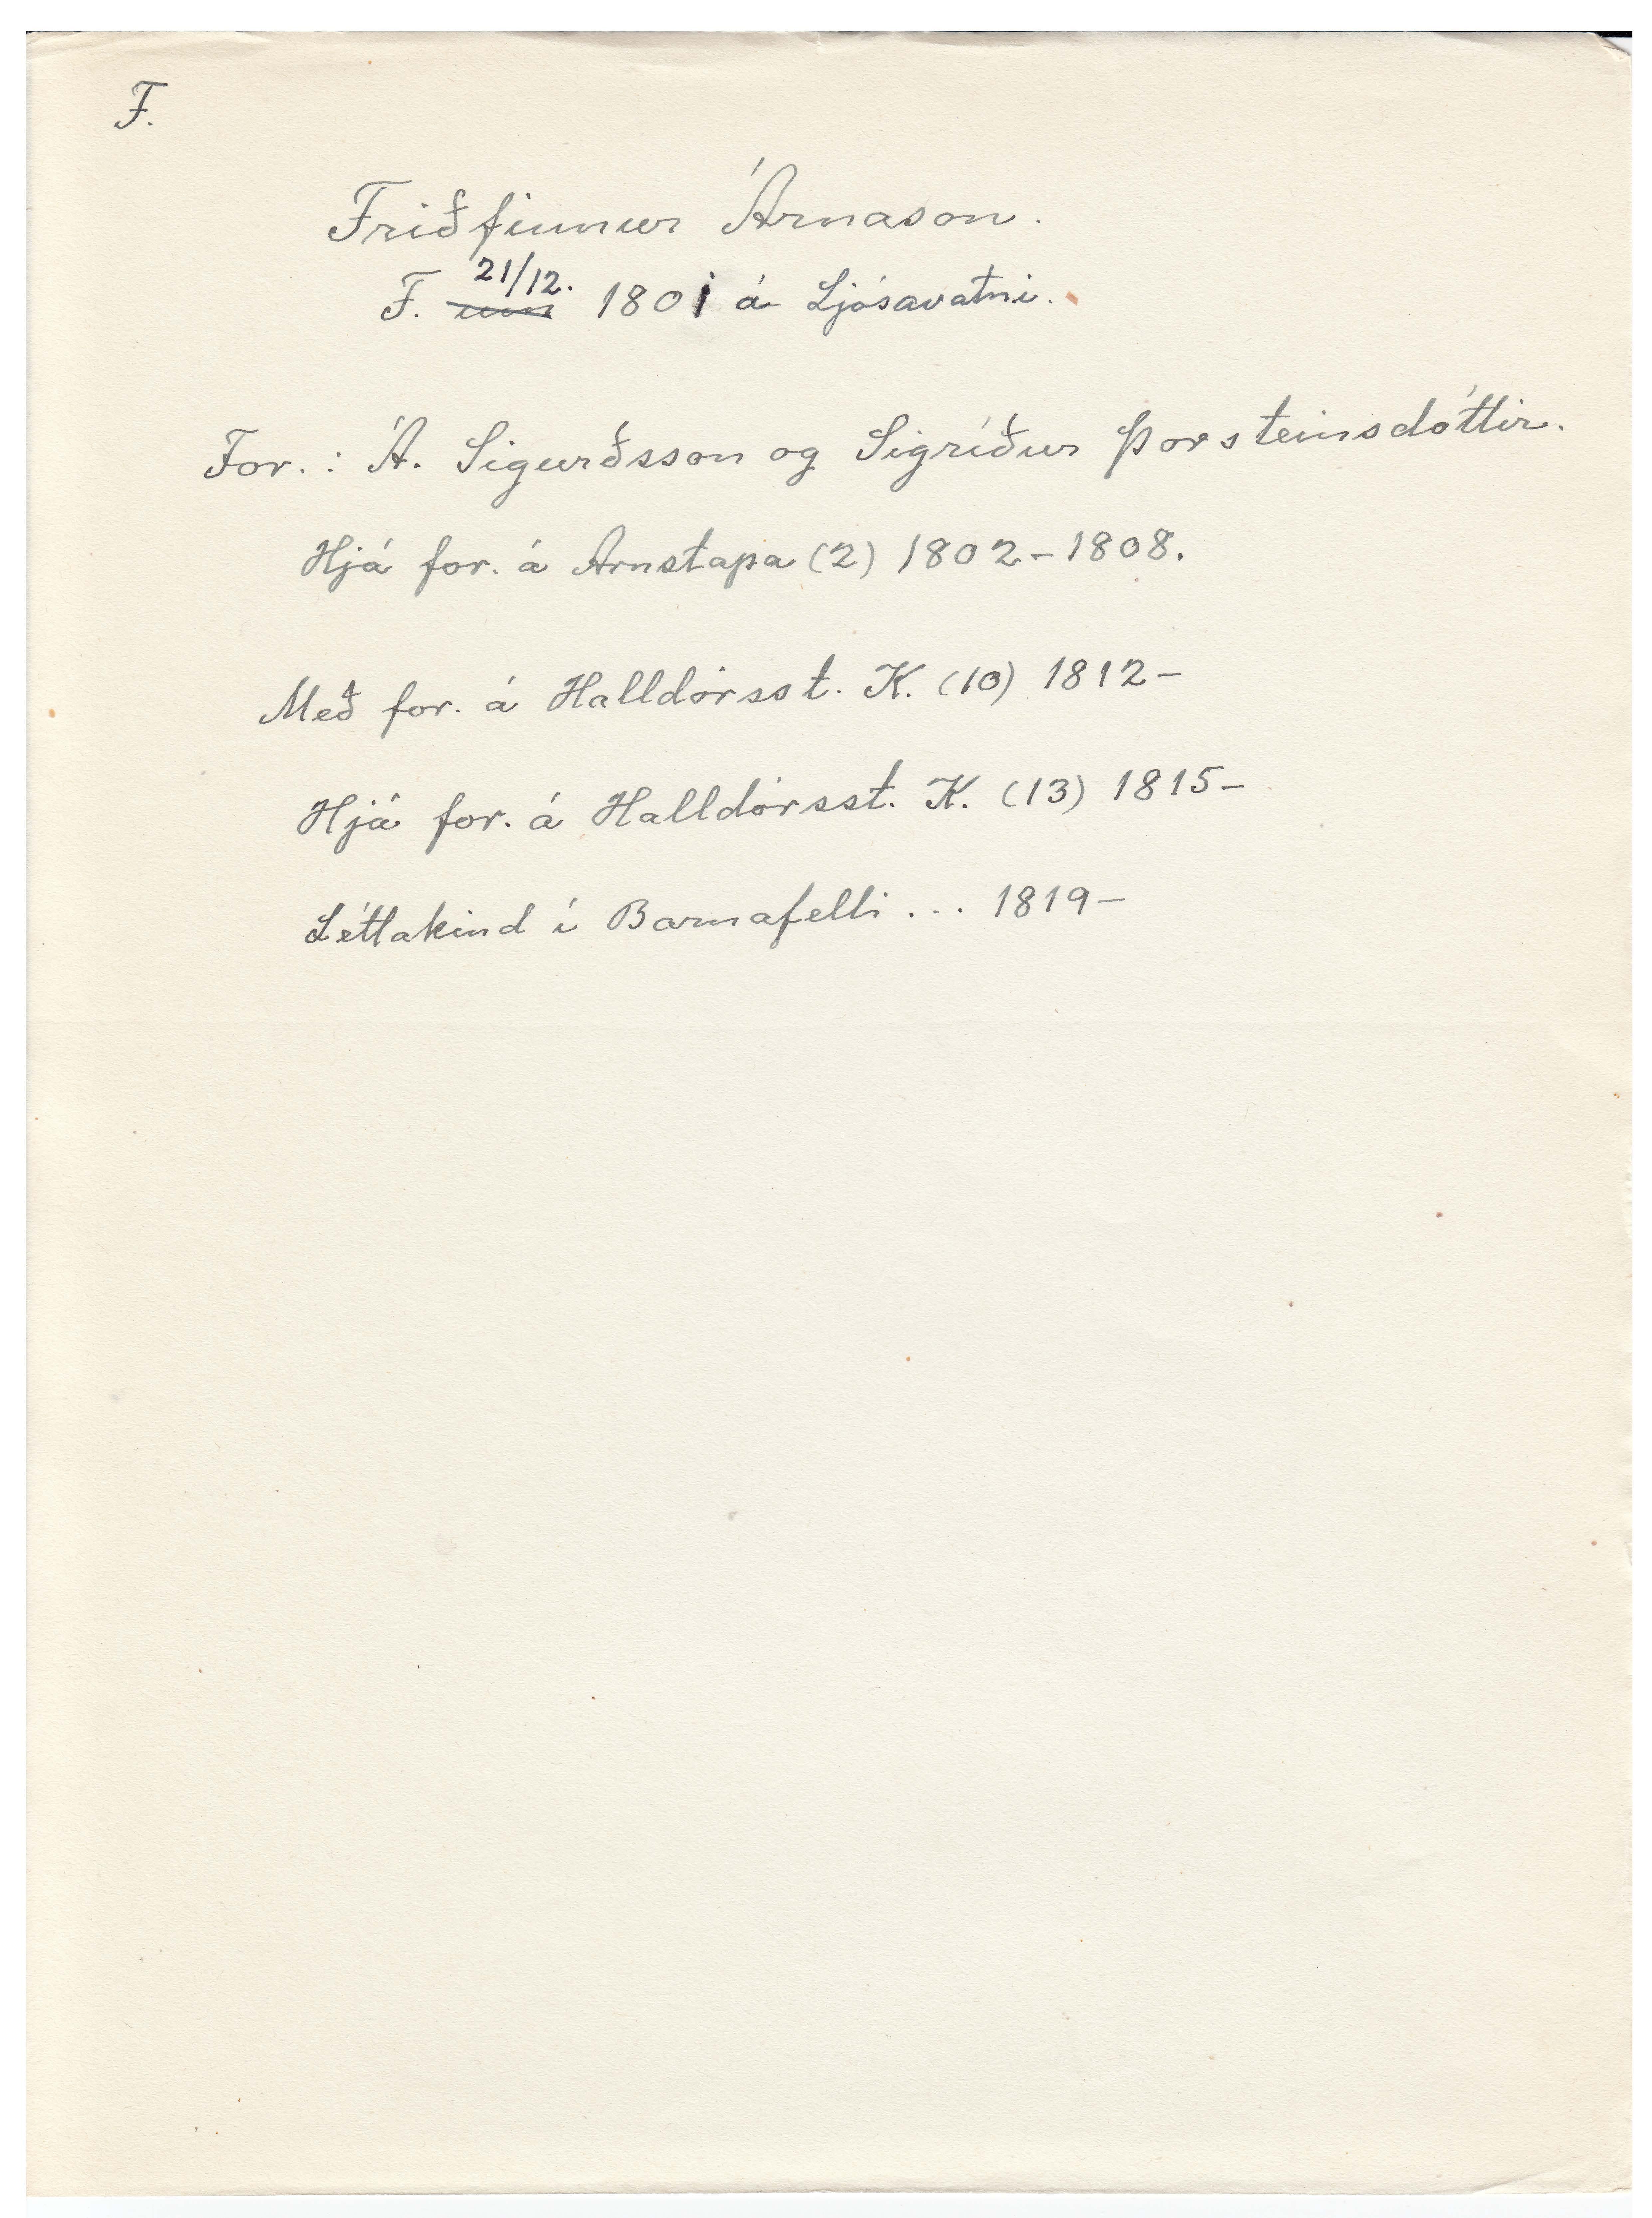 F.
Friðfinnur Árnason.
21/12.
F. um 1801 á Ljósavatni.
For.: Á. Sigurðsson og Sigríður Þorsteinsdóttir.
Hjá for. á Arnstapa (2) 1802-1808.
Með for. á Halldórsst. K. (10) 1812-
Hjá for. á Halldórsst. K. (13) 1815-
Léttakind í Barnafelli ... 1819-